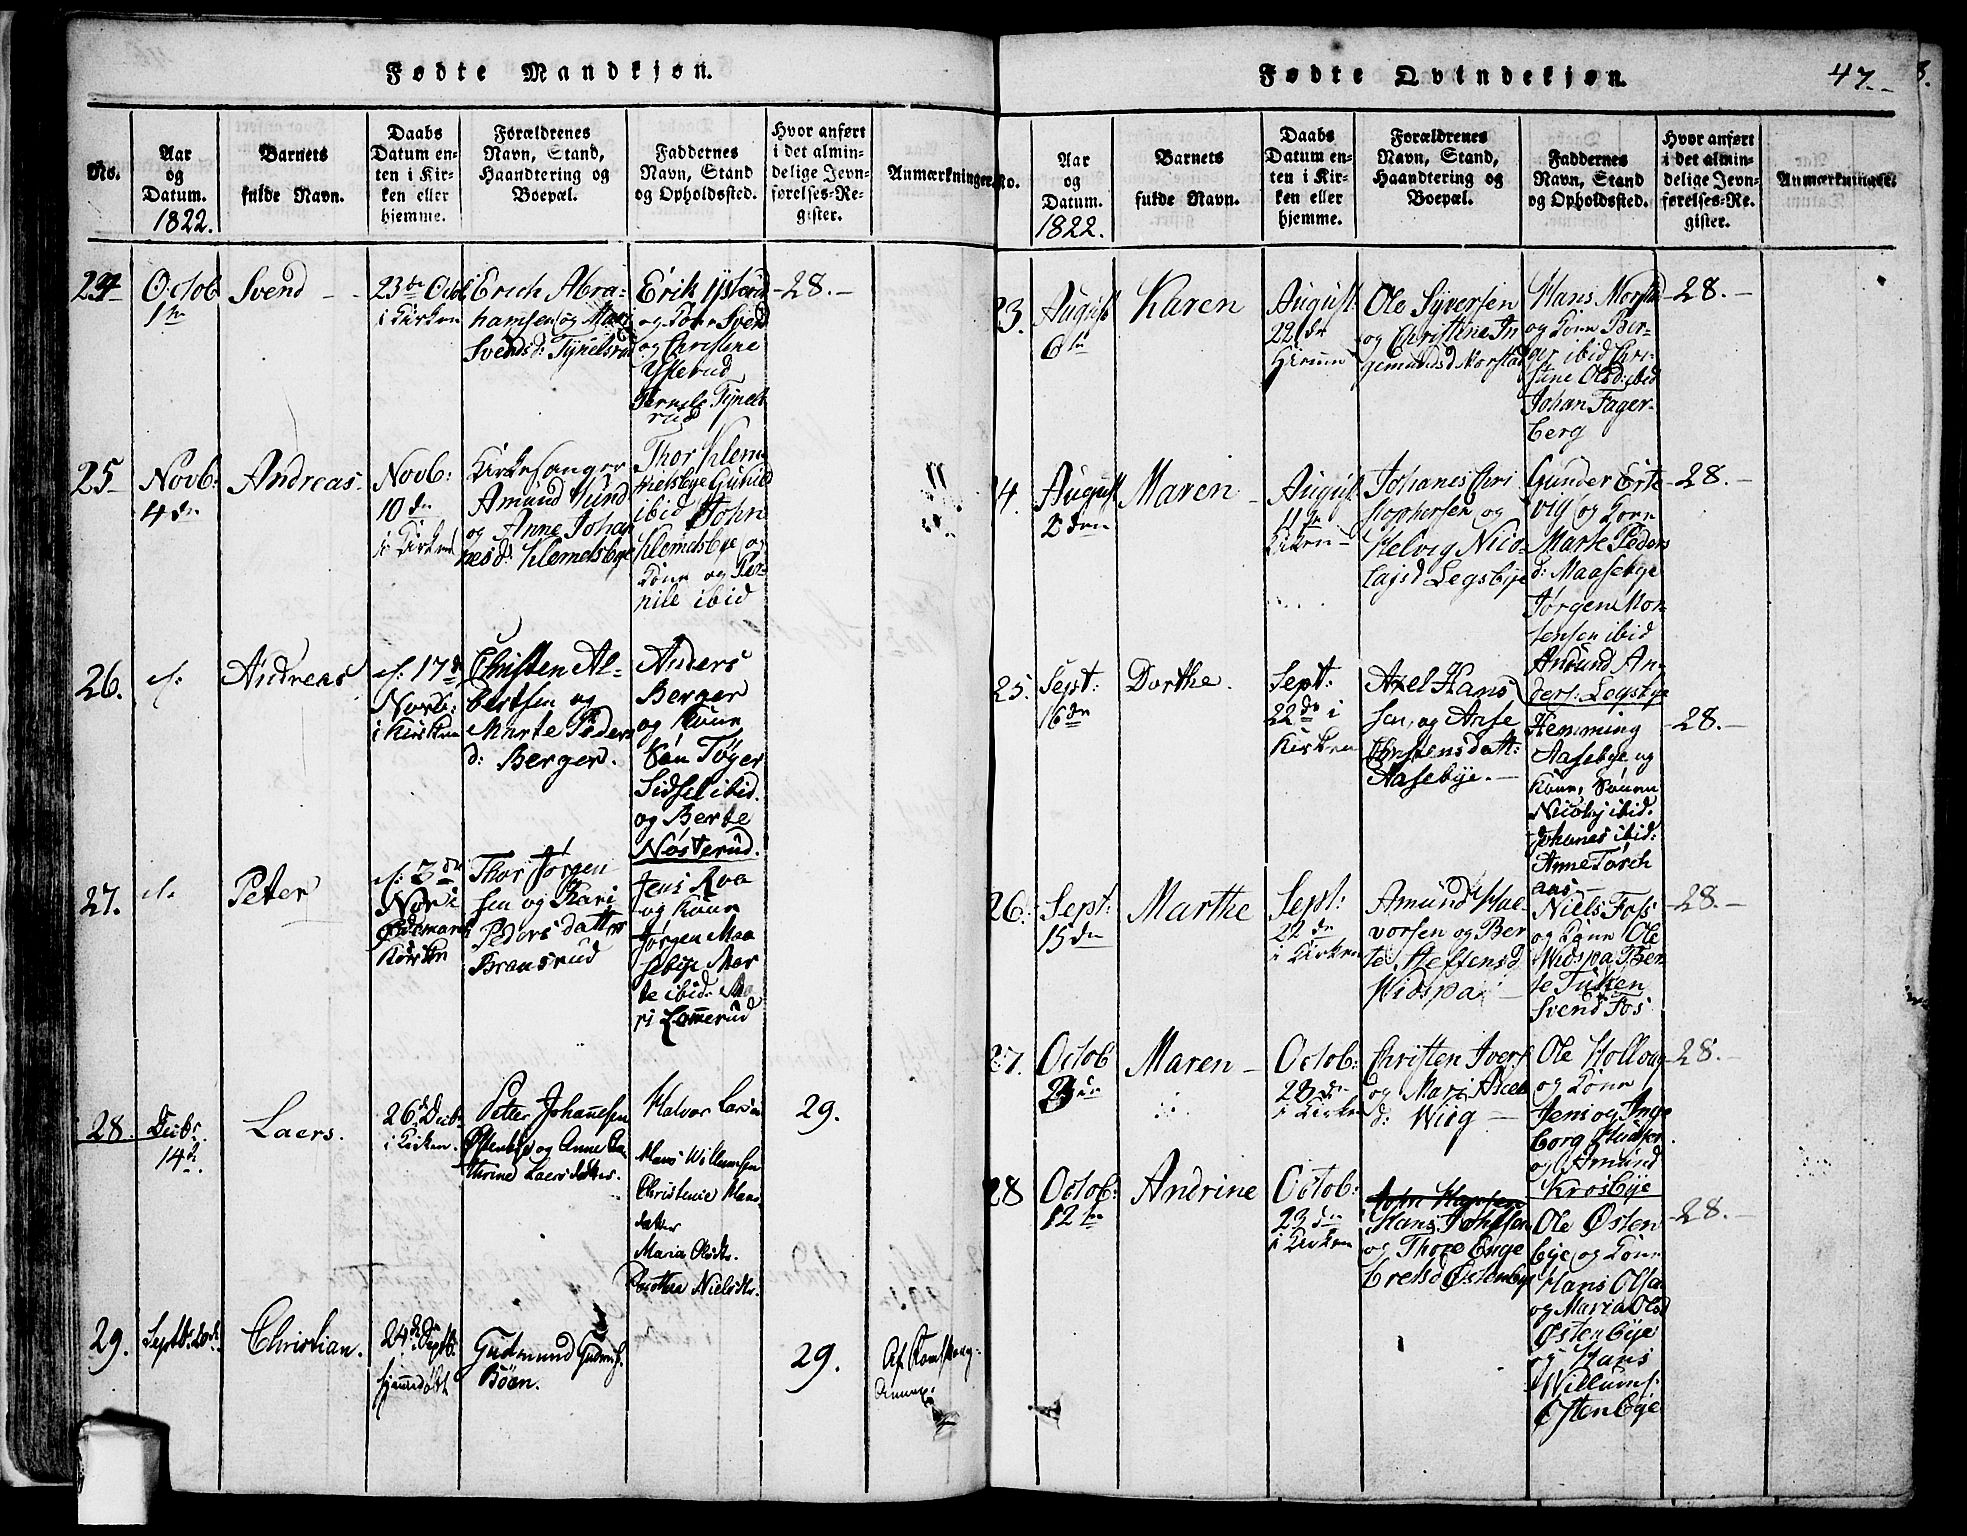 Fødte Mandkjøn.
No.
Aar
og
Datum.
1822.
Barnets
fulde Navn.
Daabs
Datum en-
ten i Kir-
ken eller
hjemme.
Forældrenes
Navn, Stand,
Haandtering og
Boepæl.
Faddernes
Navn, Stand
og Opholdssted.
Hvor anført
i det almin-
delige Jevn-
førelses-Re-
gister.
Anmærkninger.
24
Octob
1te
Svend
23de Octb
i Kirken
Erich Abra-
hamsen og Mari
Svendsd:
Erik Ysterud
og Kone Svend
og Christine
Ysterud
Pernele
rud
28.
25
Novb:
4de
Andreas
Novb:
10de
i Kirken
Kirkesanger
Amund Lund
og Anne Johan
nesd: Klemetsbye
Thor Klem-
metsbye
ibid John
Klemetsbye og
Kone og Per-
nile ibid
26.
Andreas
17d
Novb:
i Kirken
Christen Al-
bertsen og
Marte Peders
d: Berger.
Anders
Berger
og Kone
Tøger
Sidsel ibid.
og Berte
Nøsterud.
27.
Peter
3de
Novb:
Kirken
Thor Jørgen
sen og Kari
Pedersdatter
Bransrud
Jens Roa
og Kone
Jørgen Maa
sebye Mar
te ibid: Ma
ri Lommerud
28.
Decbr.
14d.
Laers.
26d Decb:
i Kirken.
Peter Johannesen
Østenbye og Anne Ca
thrine Laersdatter.
Halvor Larsen
Hans Willumsen
Christenie Hans
datter
Maria Olsdtr.
Dorthea Nielsdtr.
29.
29.
Septbr. 20d.
Christian.
24d Septb.
hjemmedøbt
Gudmund Gudm:
Böen.
29.
Af Romskoug
Annex:
Fødte Qvindekjøn.
47.
No.
Aar
og
Datum.
1822.
Barnets
fulde Navn.
Daabs
Datum en-
ten i Kir-
ken eller
hjemme.
Forældrenes
Navn, Stand,
Haandtering og
Boepæl.
Faddernes
Navn, Stand
og Opholdssted.
Hvor anført
i det almin-
delige Jevn-
førelses-Re-
gister.
Anmærkninger.
23.
August
6te
Karen
August
22de
Hiemme
Ole Syversen
og Christine In
gemundsd Morstad
Hans Morstad
og Kone Ber-
ger ibid Chri-
stine Olsd: ibid
Johan Fager-
berg
28.
24.
August
2den
Maren
August
11te
Kirken
Johanes Chri
stophersen og
Helvig Nico-
lajsd Legsbye
Gunder Erte
vig og Kone
Marte Peders
d: Maasebye
Jørgen Mor
tensen ibid
Amund An-
ders: Legsbye
28.
25.
Sept:
16de
Dorthe.
Sept:
22de i
Kirken
Axel Hans
sen, og Anse
Christensdatt:
Aasebye.
Hemming
Aasebye og
Kone,
Nicolaj ibid.
Johanes ibid:
Anne Torch
aas
28.
26.
Sept:
15de
Marthe
Sept:
22de
i Kirken
Amund Hal
vorsen og Ber
te Steffensd
Widspa
Niels Foss
og Kone Ole
Widspa Ber
te Tukken
Svend Fos
28.
27.
Octob
Maren
Octob:
23de
i Kirken
Christen Ivers
og Mari Axels
d: Wiig
Ole Kolloug
og Kone
Jens og Inge
borg
og Amund
Krosbye
28.
28
Octob:
12te
Andrine
Octob:
23de
i Kirken
John Hansen
Hans Johnsen
og Thore Enge
bretsd Østenbye
Ole Østen
bye og Kone
Hans Olsen
og Maria Olsd
Østenbye
og Hans
Willums:
Østenbye
28.